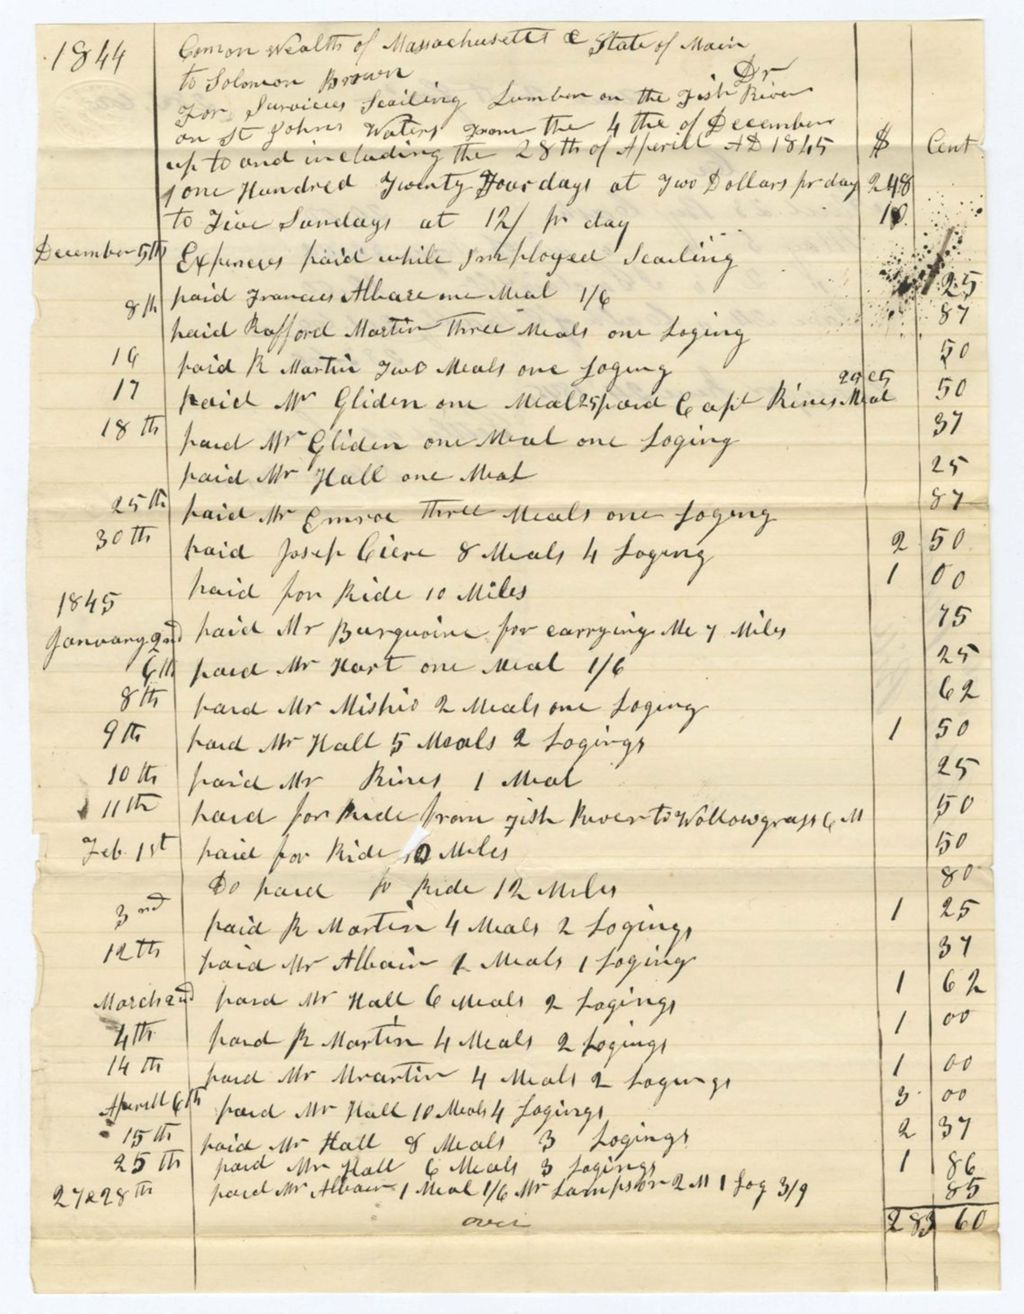 1844 Comon Wealth of Massachusetts & State of Main
to Solomon Brown Dr
For Survices Scailing Lumber on the Fish River
on St Johns Waters From the 4 the of December
up to and including the 28th of Aperill AD 1845 $ Cent
one Hundred Twenty Four days at Two Dollars pr day 248
to Five Sundays at 12/ pr day 10
December 5th Expences paid while Imployed Scailing
paid Frances Albare one Meal 1/6 25
8th paid Rafford Martin Three Meals one Loging 87
16 paid R Martin Two Meals one Loging 50
17 paid Mr Gliden one Meal 25 paid Capt Rines Meal 25 ct 50
18th paid Mr Gliden one Meal one Loging 37
paid Mr Hall one Meal 25
25th paid Mr Emroe Three Meals one Loging 87
30th paid Josep Ciere 8 Meals 4 Loging 2 50
paid for Ride 10 Miles 1 00
1845
January 2nd paid Mr Burguoine for carrying Me 7 Miles 75
6th paid Mr Hart one Meal 1/6 25
8th paid Mr Mishio 2 Meals one Loging 62
9th paid Mr Hall 5 Meals 2 Logings 1 50
10th paid Mr Rines 1 Meal 25
11th paid for Ride from Fish River to Wollowgrass 6 M 50
Feb 1st paid for Ride 10 Miles 50
Do paid fr Ride 12 Miles 80
3rd paid R Martin 4 Meals 2 Logings 1 25
12th paid Mr Albair 2 Meals 1 Loging 37
March 2nd paid Mr Hall 6 Meals 2 Logings 1 62
4th paid R Martin 4 Meals 2 Logings 1 00
14th paid Mr Mrartin 4 Meals 2 Logings 1 00
Aperill 6th paid Mr Hall 10 Meals 4 Logings 3 00
15th paid Mr Hall 8 Meals 3 Logings 2 37
25th paid Mr Hall 6 Meals 3 Logings 1 86
27 & 28th paid Mr Albair 1 Meal 1/6 Mr Lampson 2 M 1 Log 3/9 85
over 283 60